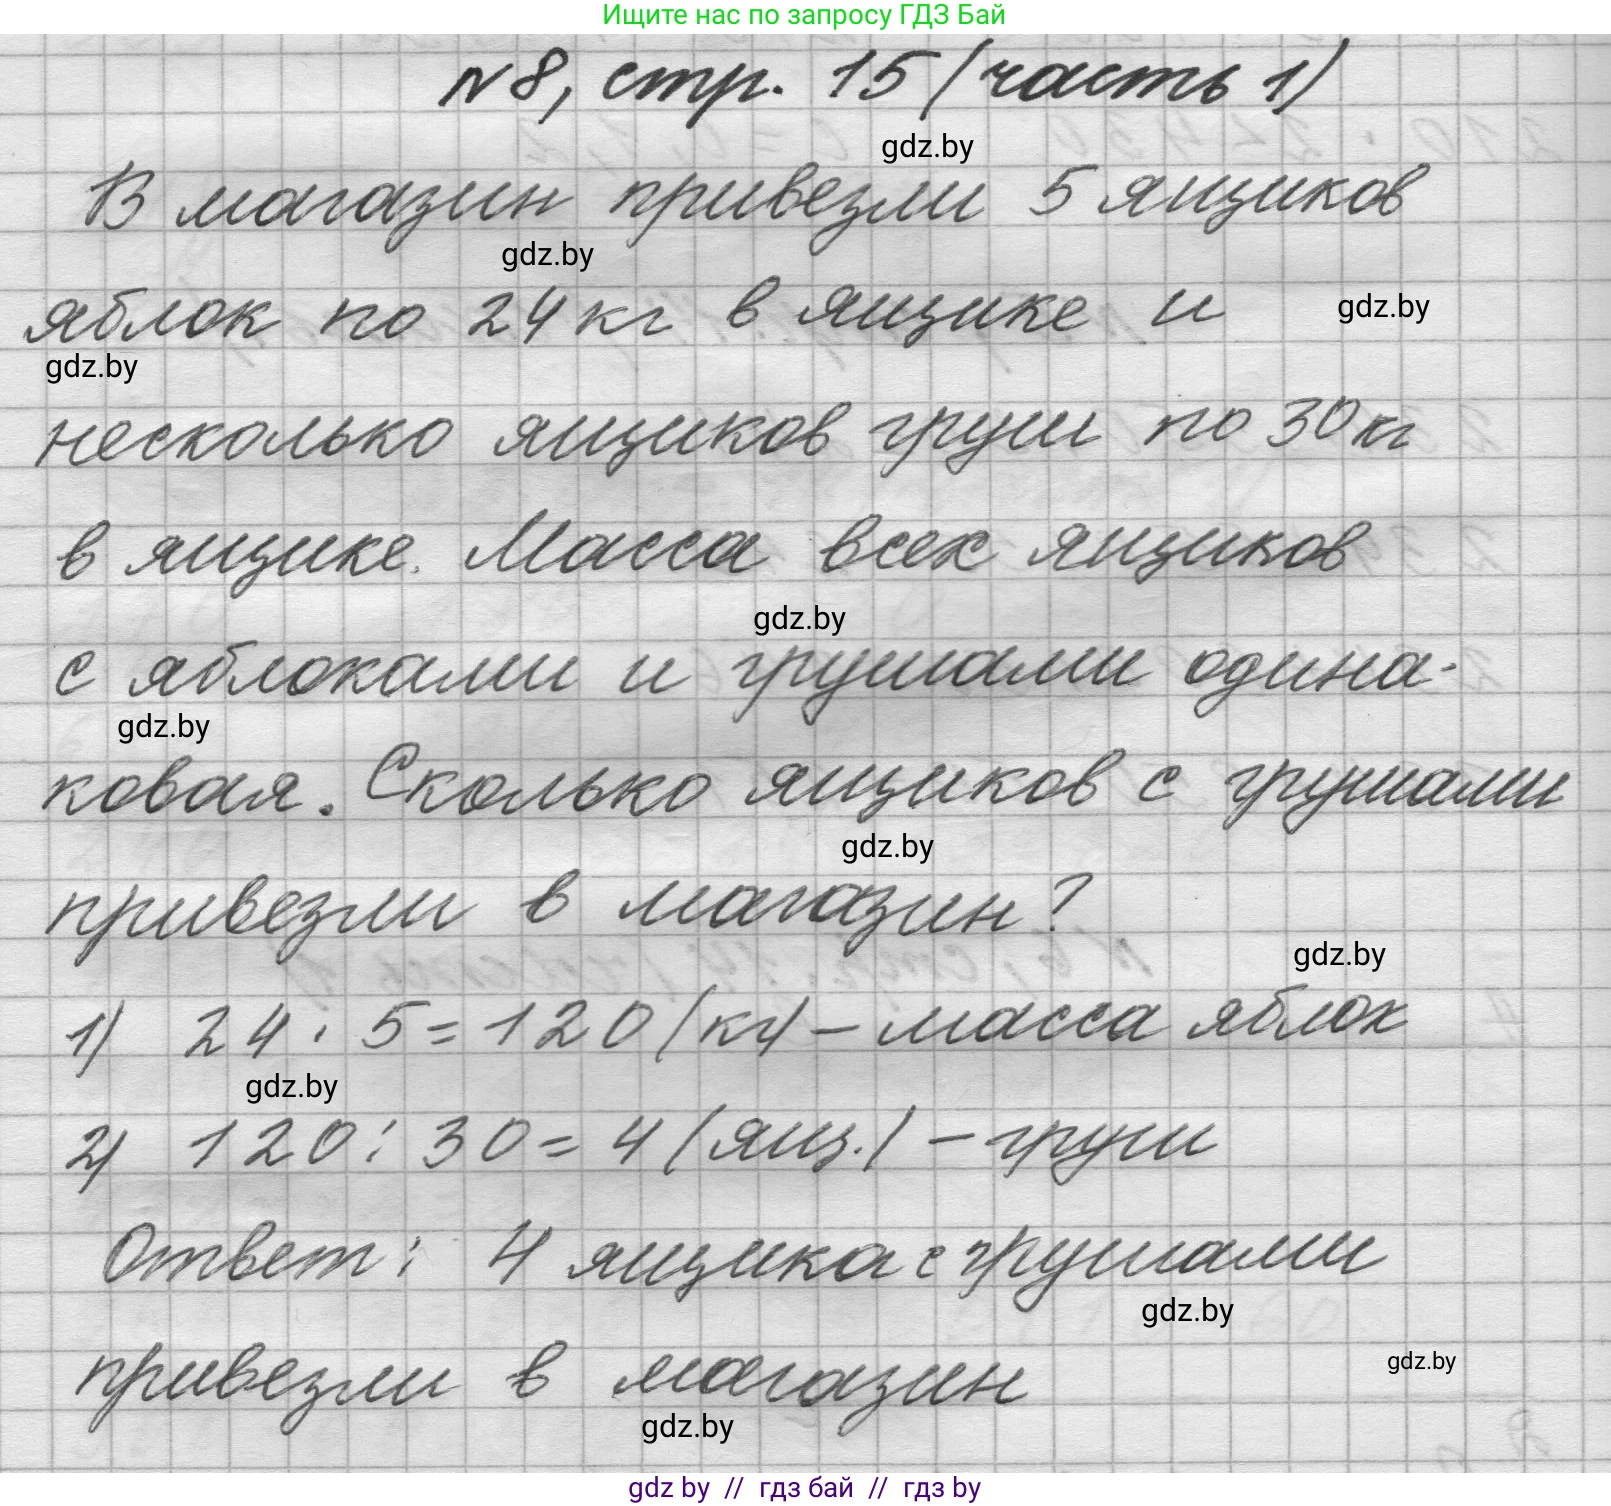 Ищите нас по запросу ГДЗ Бай
№8, стр. 15 (часть 1)
gdz.by
В магазин привезли 5 ящиков
gdz.by
яблок по 24 кг в ящике и
gdz.by
gdz.by
несколько ящиков груш по 30 кг
в ящике. Масса всех ящиков
gdz.by
с яблоками и грушами одина-
gdz.by
ковая. Сколько ящиков с грушами
gdz.by
привезли в магазин?
gdz.by
1) 24 · 5 = 120 (кг) – масса яблок
gdz.by
2) 120 : 30 = 4 (ящ.) – груш
Ответ: 4 ящика с грушами
gdz.by
привезли в магазин
gdz.by
gdz.by
gdz by // гдз бай // гдз by